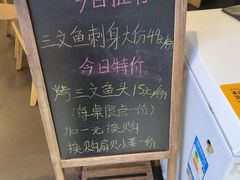 今日推荐
三文鱼刺身大份49元/份
今日特价
烤三文鱼头15元/份
(每桌限点一份)
加一元换购
换购扇贝小菜一份